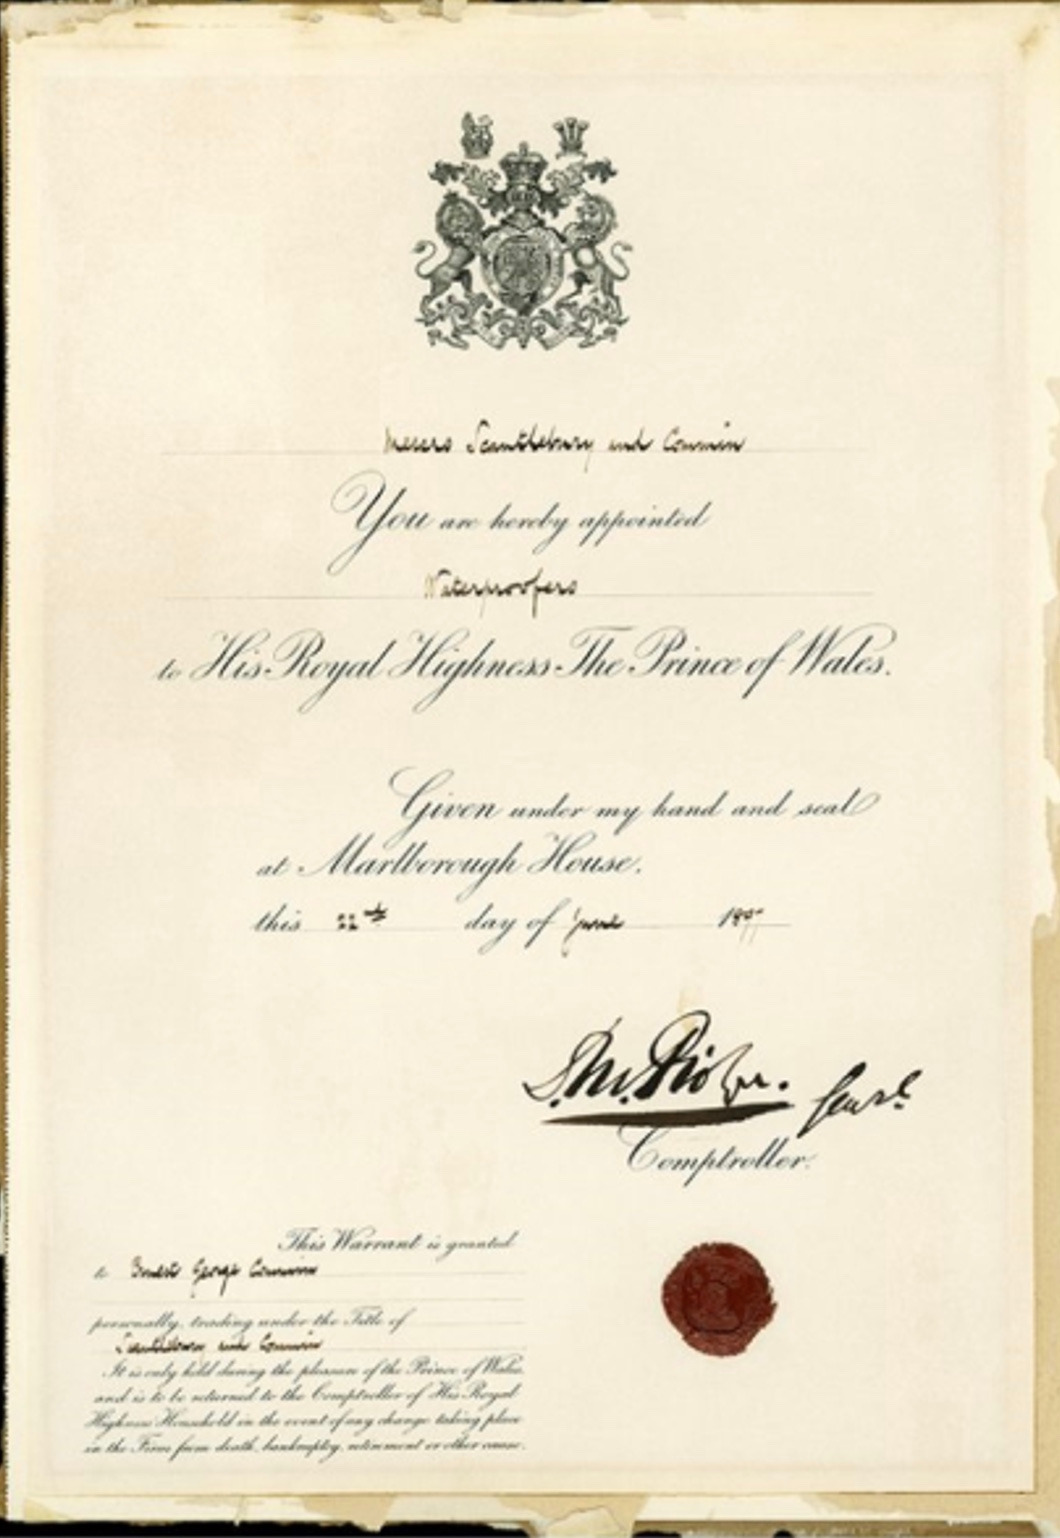 Messrs Scantlebury and Commin
You are hereby appointed
Waterproofers
to His Royal Highness The Prince of Wales.
Given under my hand and seal
at Marlborough House.
this 22nd day of June 1897
Comptroller.
This Warrant is granted
to Ernest George Commin
personally, trading under the Title of
Scantlebury and Commin
It is only held during the pleasure of the Prince of Wales,
and is to be returned to the Comptroller of His Royal
Highness' Household in the event of any change taking place
in the Firm from death, bankruptcy, retirement or other cause.